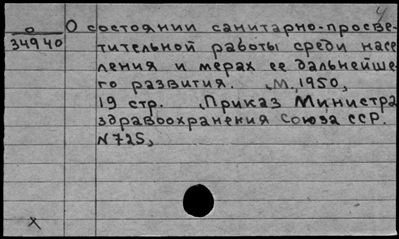 У
О О состоянии санитарно-просве-
34940 тительной работы среди насе-
ления и мерах ее дальнейше-
го развития. М., 1950,
19 стр. Приказ Министра
здравоохранения Союза ССР.
N725,
х